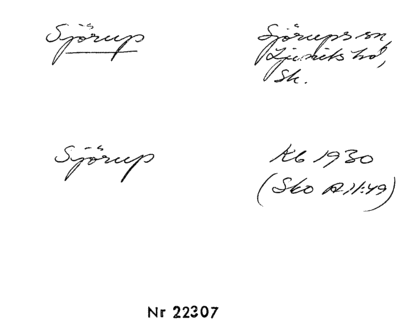 Sjörup
Sjörups sn,
Ljunits hd,
Sk.
Sjörup
Kb 1930
(Sko A II:49)
Nr 22307